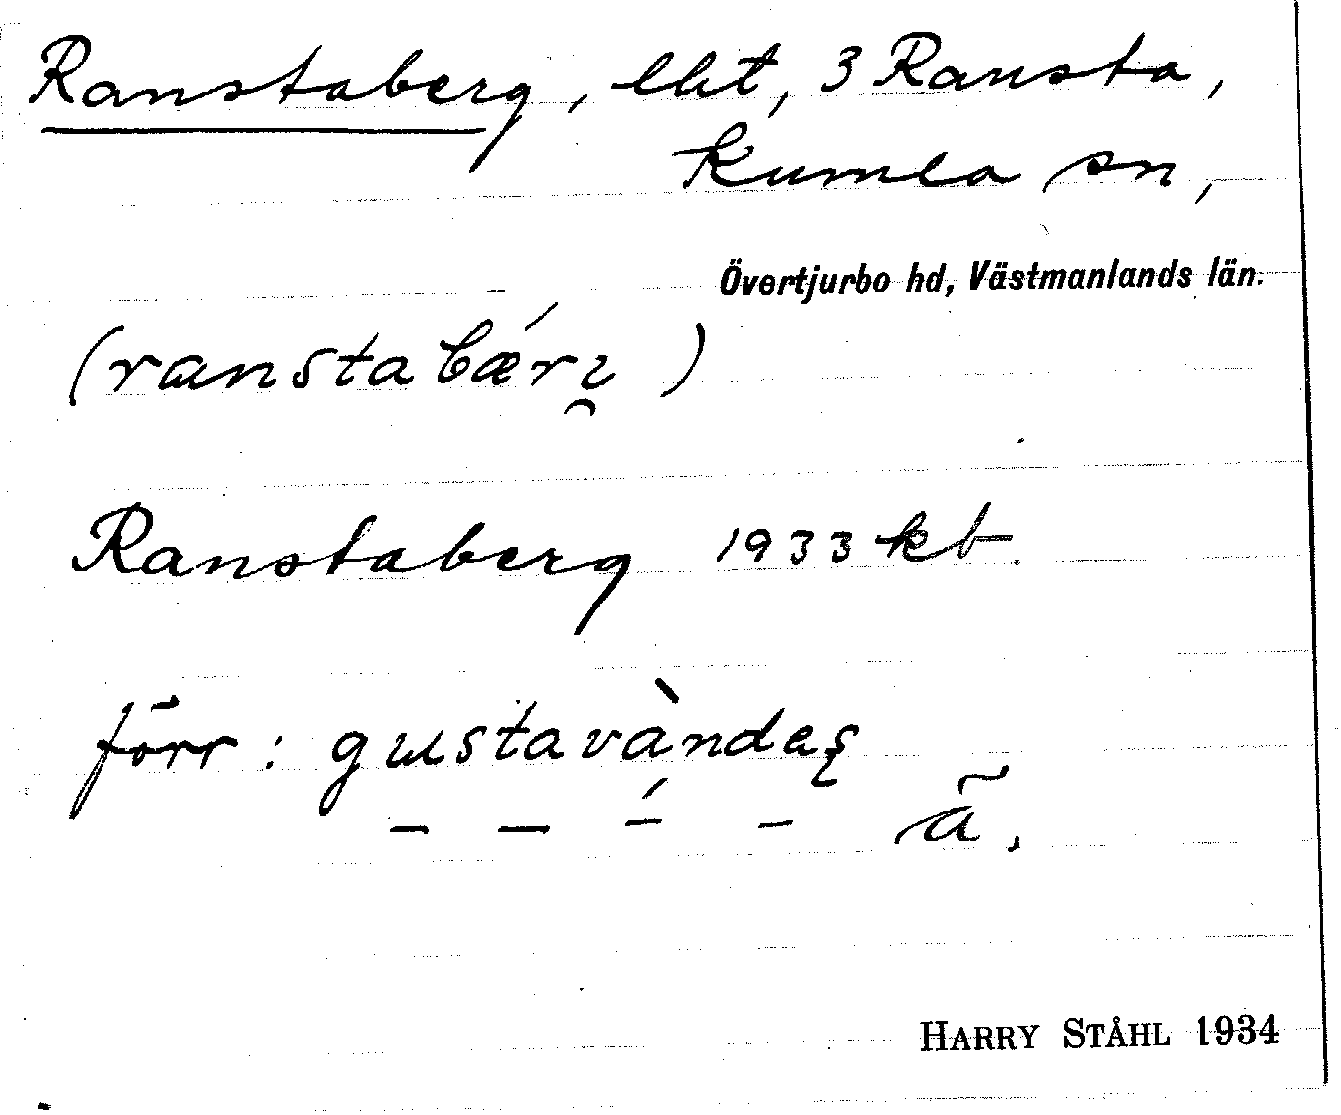 Ranstaberg, lht, 3 Ransta,
Kumla sn,
Övertjurbo hd, Västmanlands län.
(ranstabǽrı̯)
Ranstaberg 1933 kb
förr: gustavàndeș
– – –́ – ã.
HARRY STÅHL 1934